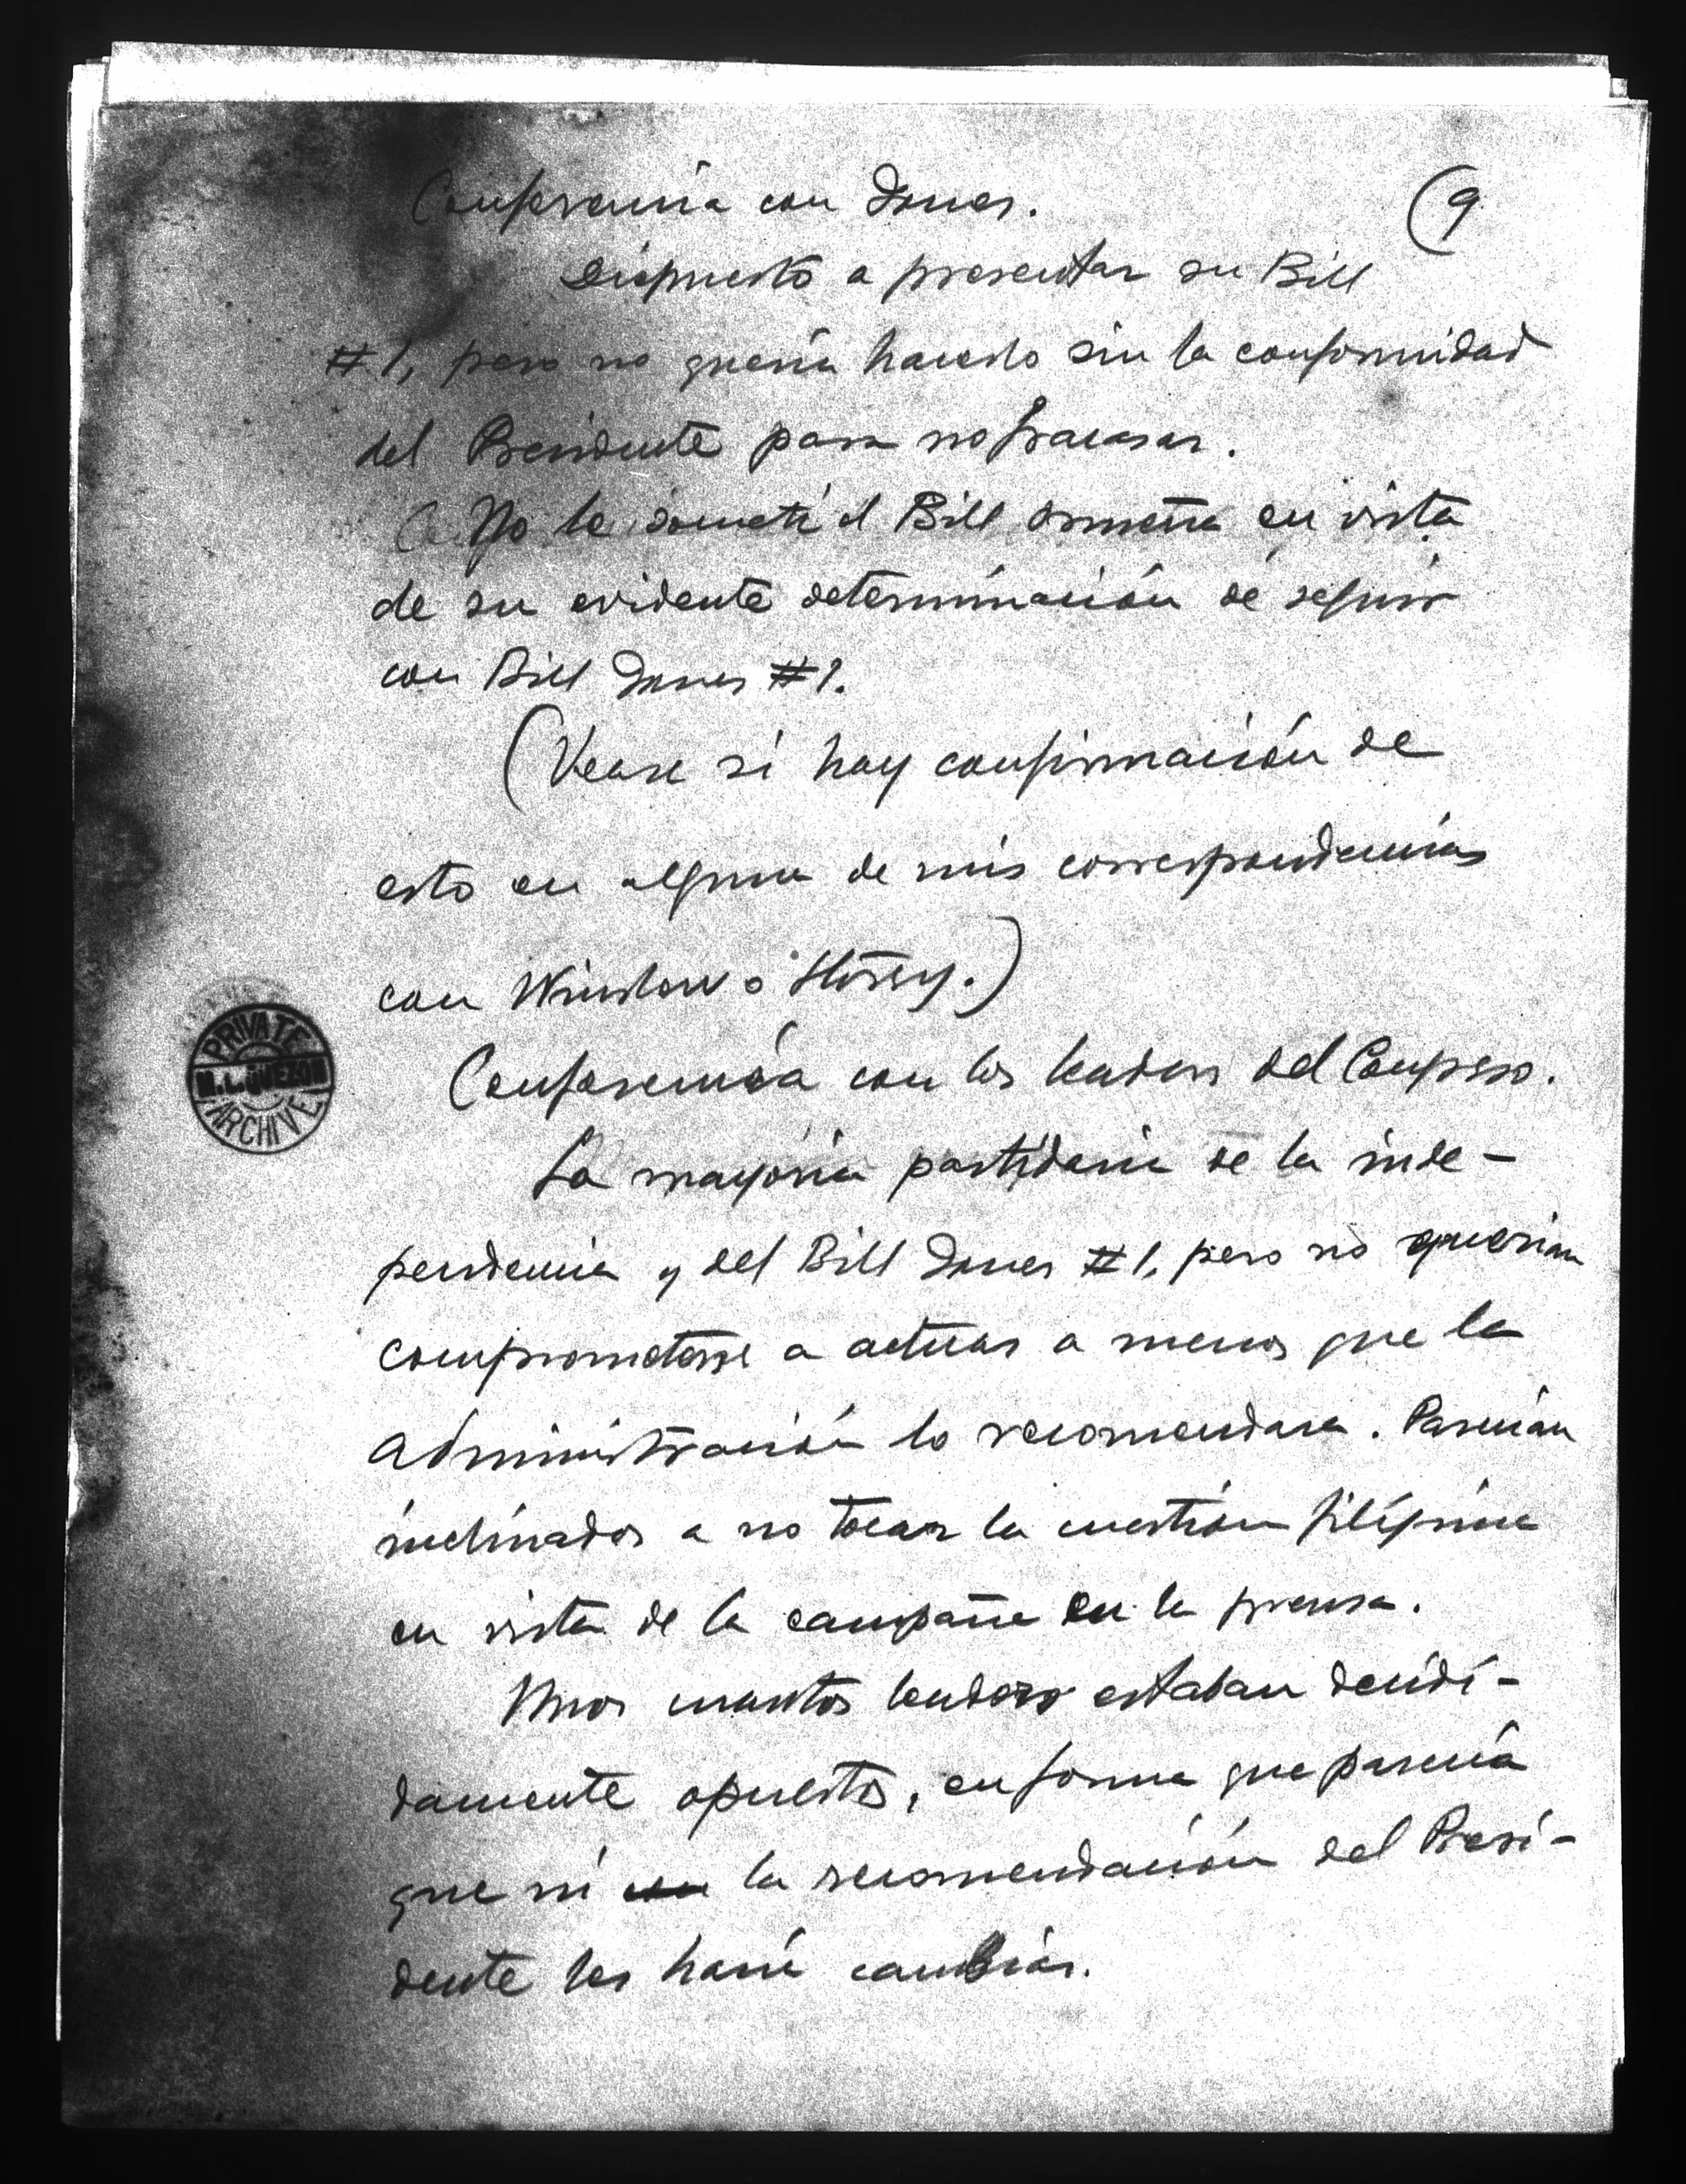 Conferencia con Jones. (9
Dispuesto a presentar su Bill
#1, pero no quería hacerlo sin la conformidad
del Presidente para no fracasar.
No le sometí el Bill Osmeña en vista
de su evidente determinación de seguir
con Bill Jones #1.
(Vease si hay confirmación de
esto en alguna de mis correspondencias
con Winslow o Storey.)
Conferencia con los leaders del Congreso.
La mayoría partidaria de la inde-
pendencia y del Bill Jones #1, pero no querían
comprometerse a actuar a menos que la
administración lo recomendara. Parecían
inclinados a no tocar la cuestión filipina
en vista de la campaña en la prensa.
Unos cuantos leaders estaban decidi-
damente opuestos, en forma que parecía
que ni con la recomendación del Presi-
dente les haría cambiar.
PRIVATE
M.L. QUEZON
ARCHIVE